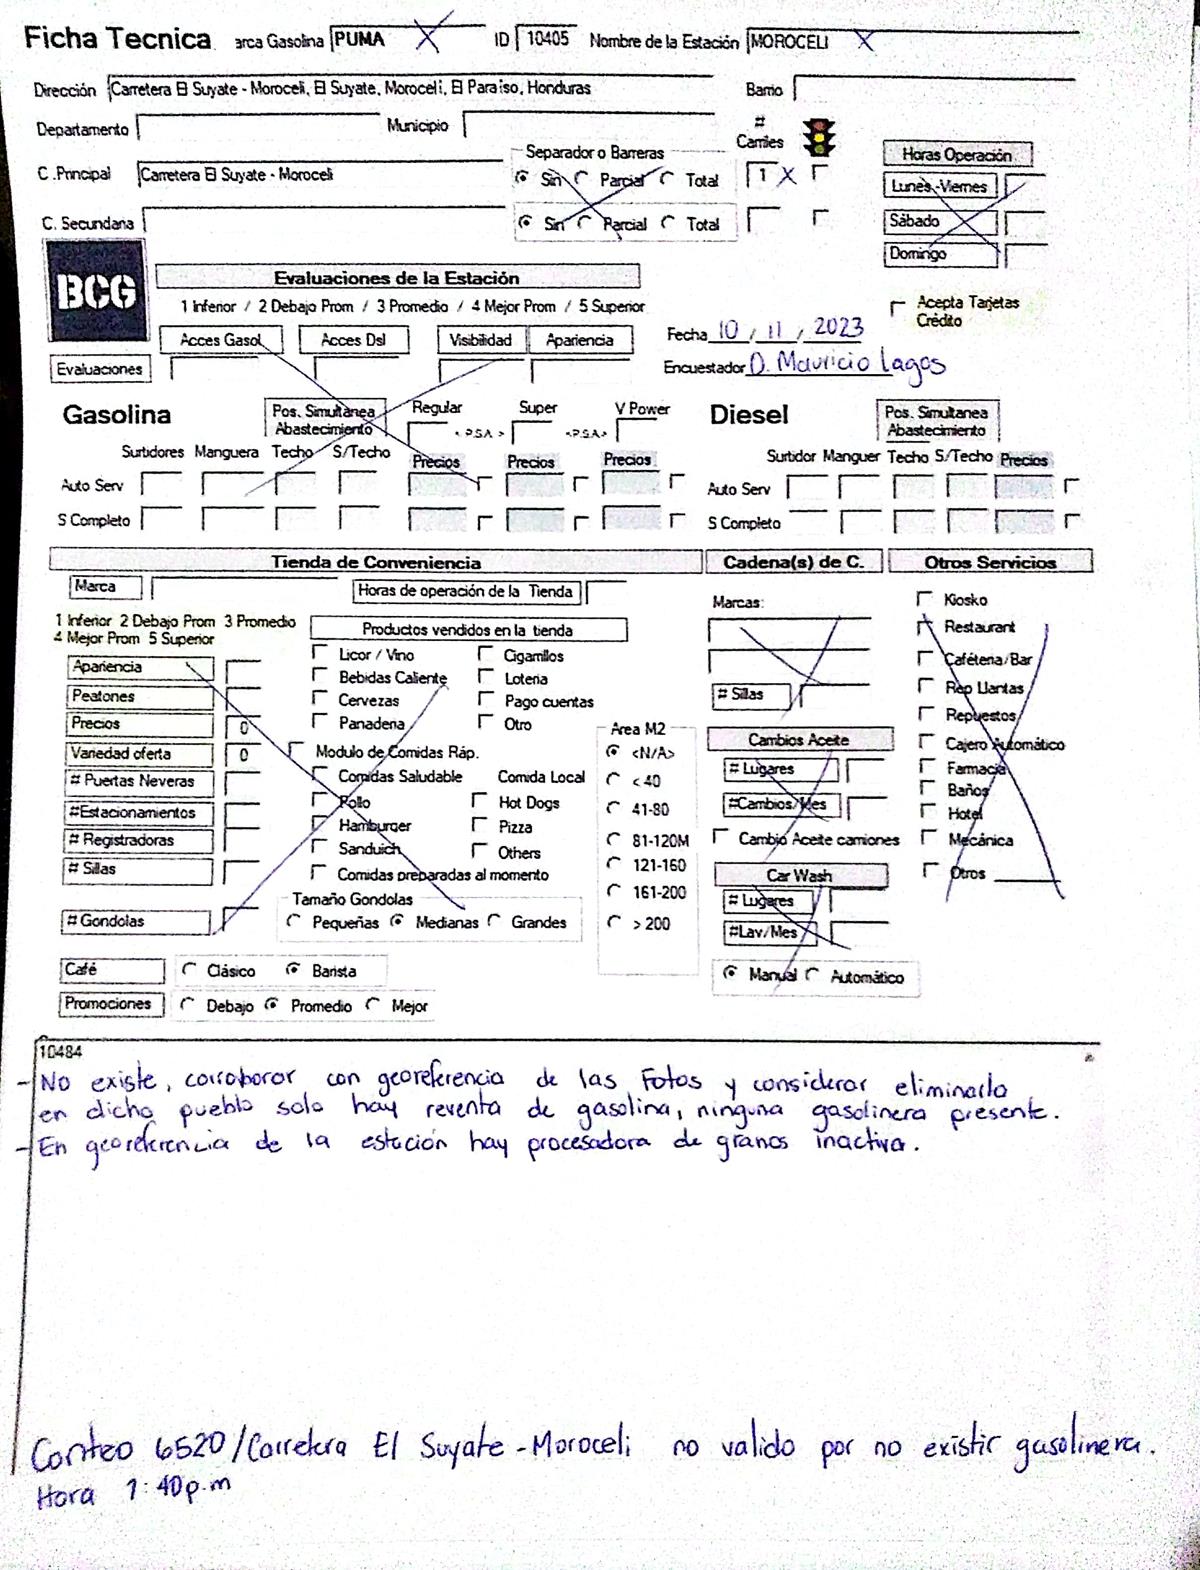 Ficha Tecnica arca Gasolina PUMA X ID 10405 Nombre de la Estación MOROCELI X
Dirección Carretera El Suyate - Moroceli, El Suyate, Moroceli, El Paraíso, Honduras Barrio
Departamento Municipio # Carriles
C .Principal Carretera El Suyate - Moroceli
Separador o Barreras
Sin Parcial Total 1 X
C. Secundana
Sin Parcial Total
Horas Operación
Lunes-Viernes
Sábado
Domingo
BCG
Evaluaciones de la Estación
1 Inferior / 2 Debajo Prom / 3 Promedio / 4 Mejor Prom / 5 Superior
Acepta Tarjetas
Crédito
Acces Gasol Acces Dsl Visibilidad Apariencia
Evaluaciones
Fecha 10 / 11 / 2023
Encuestador D. Mauricio Lagos
Gasolina
Pos. Simultanea
Abastecimiento
Regular Super V Power
< P.S.A > <P.S.A>
Surtidores Manguera Techo S/Techo Precios Precios Precios
Auto Serv
S Completo
Diesel
Pos. Simultanea
Abastecimiento
Surtidor Manguer Techo S/Techo Precios
Auto Serv
S Completo
Tienda de Conveniencia
Marca Horas de operación de la Tienda
1 Inferior 2 Debajo Prom 3 Promedio
4 Mejor Prom 5 Superior
Apariencia
Peatones
Precios 0
Variedad oferta 0
# Puertas Neveras
#Estacionamientos
# Registradoras
# Sillas
# Gondolas
Productos vendidos en la tienda
Licor / Vino Cigarrillos
Bebidas Caliente Loteria
Cervezas Pago cuentas
Panadena Otro
Modulo de Comidas Ráp.
Comidas Saludable Comida Local
Pollo Hot Dogs
Hamburger Pizza
Sanduich Others
Comidas preparadas al momento
Tamaño Gondolas
Pequeñas Medianas Grandes
Area M2
<N/A>
< 40
41-80
81-120M
121-160
161-200
> 200
Café Clásico Barista
Promociones Debajo Promedio Mejor
Cadena(s) de C.
Marcas:
# Sillas
Cambios Aceite
# Lugares
#Cambios/Mes
Cambio Aceite camiones
Car Wash
# Lugares
#Lav/Mes
Manual Automático
Otros Servicios
Kiosko
Restaurant
Cafétena/Bar
Rep Llantas
Repuestos
Cajero Automático
Farmacia
Baños
Hotel
Mecánica
Otros
10484
- No existe, corroborar con georeferencia de las Fotos y considerar eliminarla
en dicho pueblo solo hay reventa de gasolina, ninguna gasolinera presente.
- En georeferencia de la estación hay procesadora de granos inactiva.
Conteo 6520/Carretera El Suyate - Moroceli no valido por no existir gasolinera.
Hora 1:40p.m